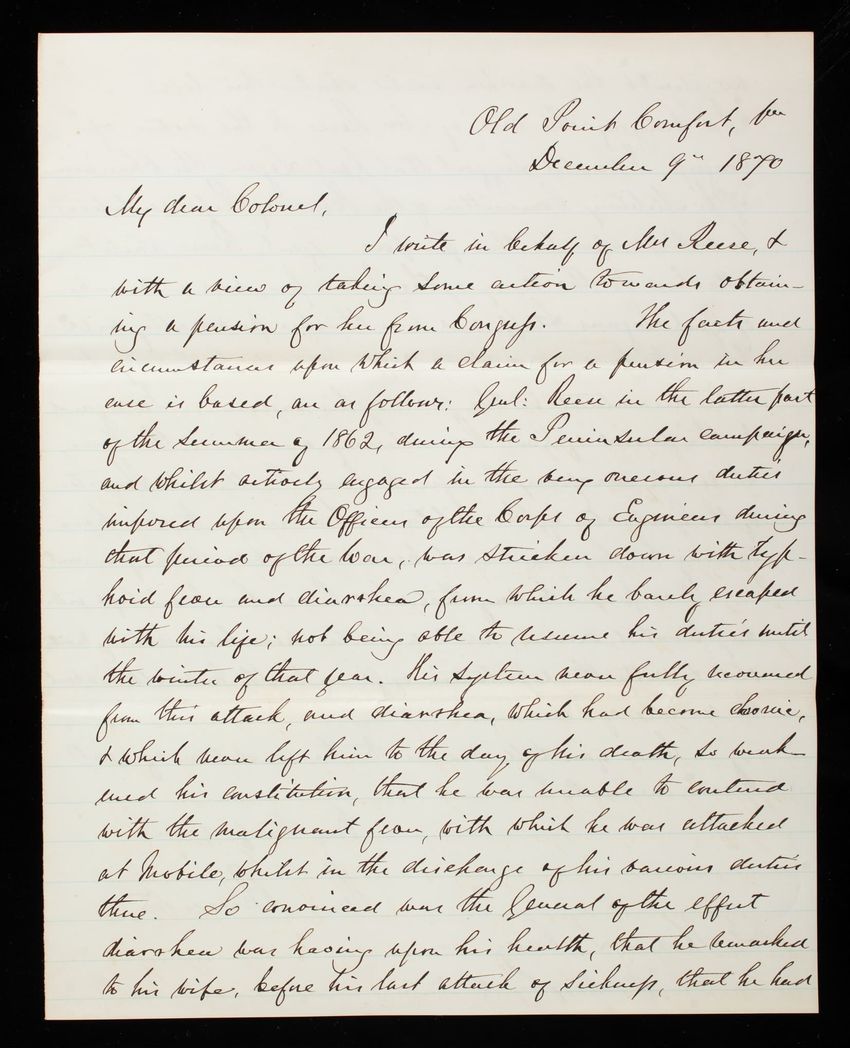 Old Point Comfort, Va
December 9" 1870
My dear Colonel,
I write in behalf of Mrs Reese, &
with a view of taking some action towards obtain-
ing a pension for her from Congress. The facts and
circumstances upon which a claim for a pension in her
case is based, are as follows: Genl: Reese in the latter part
of the summer of 1862, during the Peninsular campaign,
and whilst actively engaged in the very onerous duties
imposed upon the Officers of the Corps of Engineers during
that period of the War, was stricken down with typ-
hoid fever and diarrhea, from which he barely escaped
with his life; not being able to resume his duties until
the winter of that year. His system never fully recovered
from this attack, and diarrhea, which had become chronic,
& which never left him to the day of his death, so weak-
ened his constitution, that he was unable to contend
with the malignant fever, with which he was attacked
at Mobile, whilst in the discharge of his various duties
there. So convinced was the General of the effect
diarrhea was having upon his health, that he remarked
to his wife, before his last attack of sickness, that he had